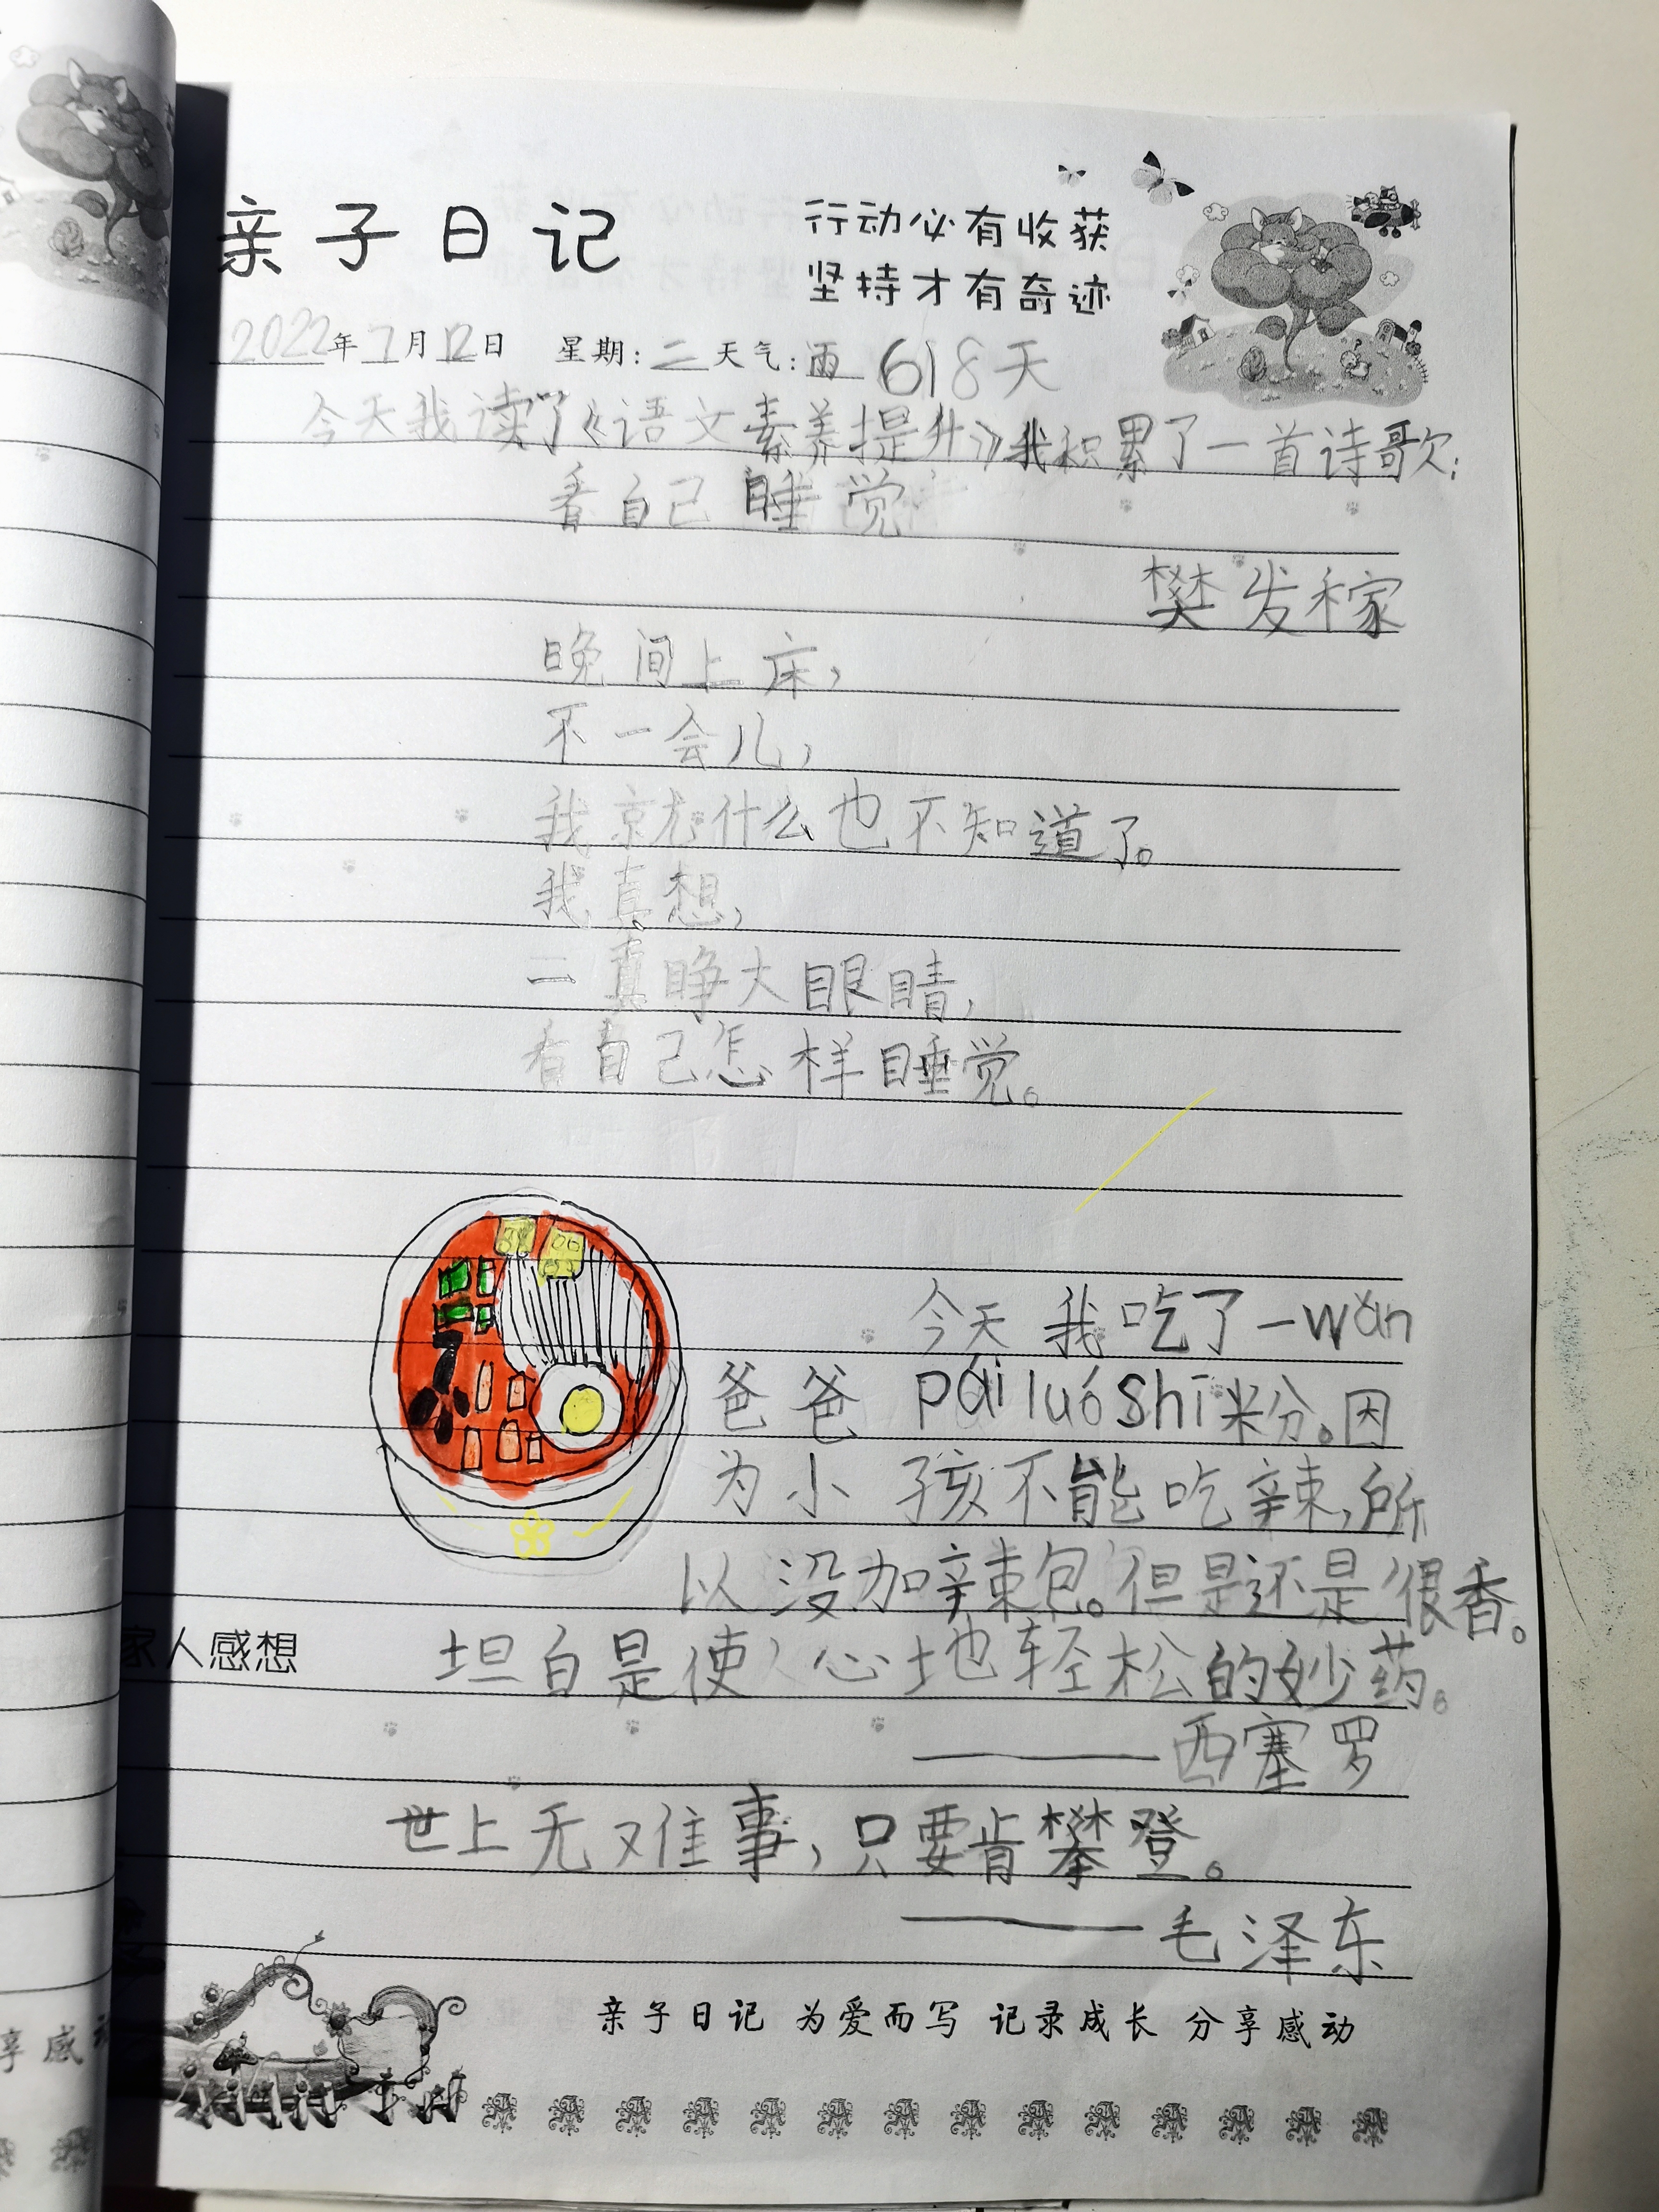 亲子日记
行动必有收获
坚持才有奇迹
2022年7月12日 星期:二天气:雨 618天
今天我读了《语文素养提升》我积累了一首诗歌:
看自己睡觉
樊发稼
晚间上床,
不一会儿,
我就什么也不知道了。
我真想,
二真睁大眼睛,
看自己怎样睡觉。
今天我吃了一wǎn
爸爸pái luó shī粉。因
为小孩不能吃辣,所
以没加辣包。但是还是很香。
家人感想 坦白是使心地轻松的妙药。
——西塞罗
世上无难事,只要肯攀登。
——毛泽东
亲子日记 为爱而写 记录成长 分享感动
享感动